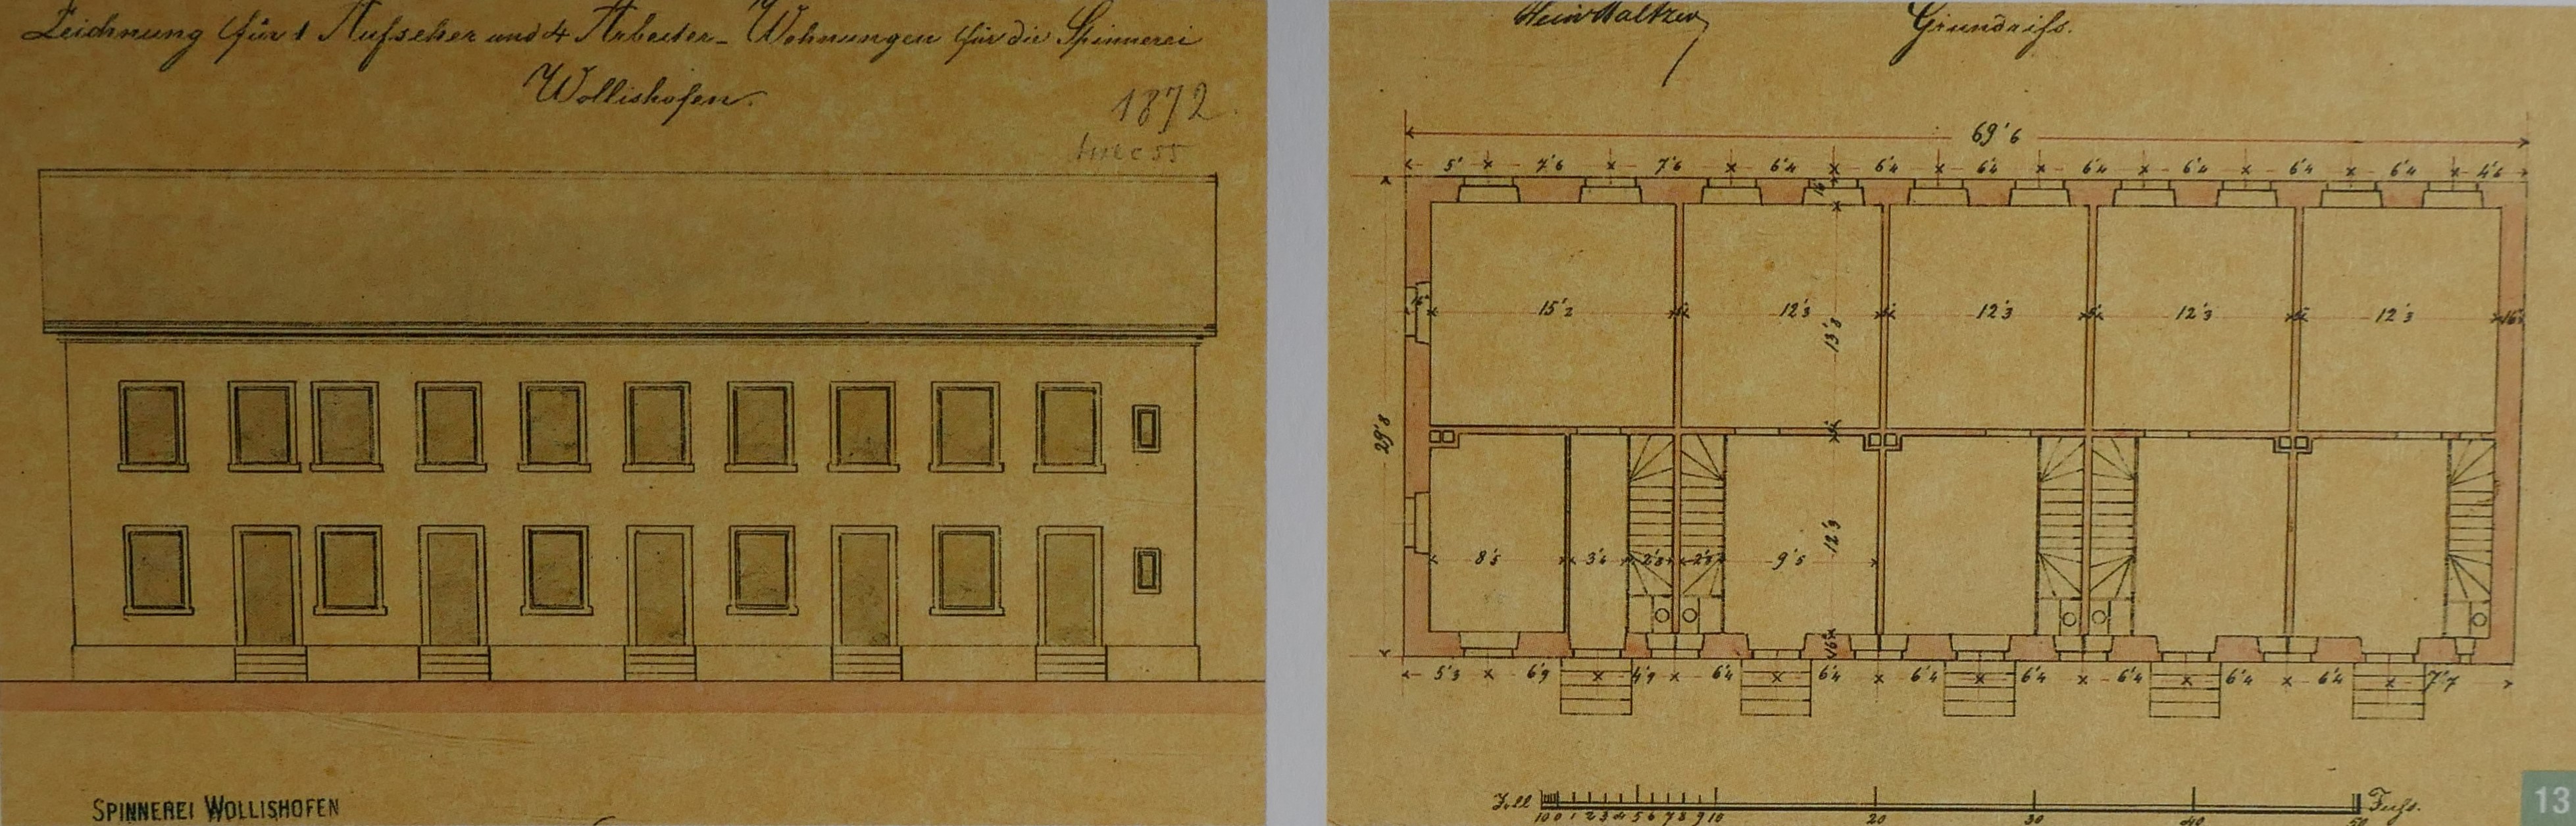 Zeichnung für 1 Aufseher und 4 Arbeiter-Wohnungen für die Spinnerei
Wollishofen.
1872
SPINNEREI WOLLISHOFEN
Grundriſs.
69'6
5' 7'6 7'6 6'4 6'4 6'4 6'4 6'4 6'4 6'4 4'6
15'2 12'3 12'3 12'3 12'3
13'8
29'8
8'5 3'4 2'8 2'8 9'5
12'9
5'3 6'9 4'9 6'4 6'4 6'4 6'4 6'4 6'4 6'4 7'7
Zoll Fuſs.
10 0 1 2 3 4 5 6 7 8 9 10 20 30 40 50
13